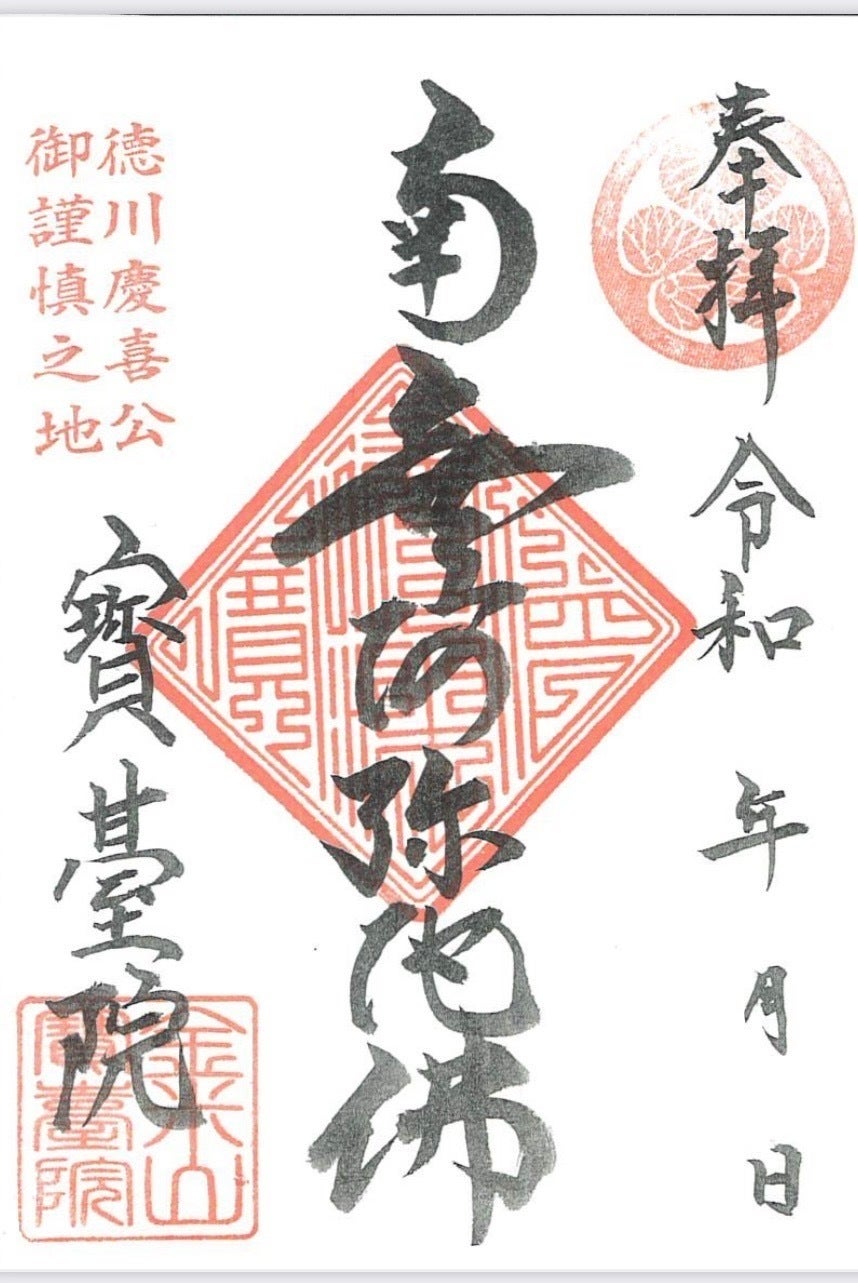 奉拝
令和 年 月 日
南無阿弥陀佛
徳川慶喜公
御謹慎之地
寶臺院
金米山
寶臺院